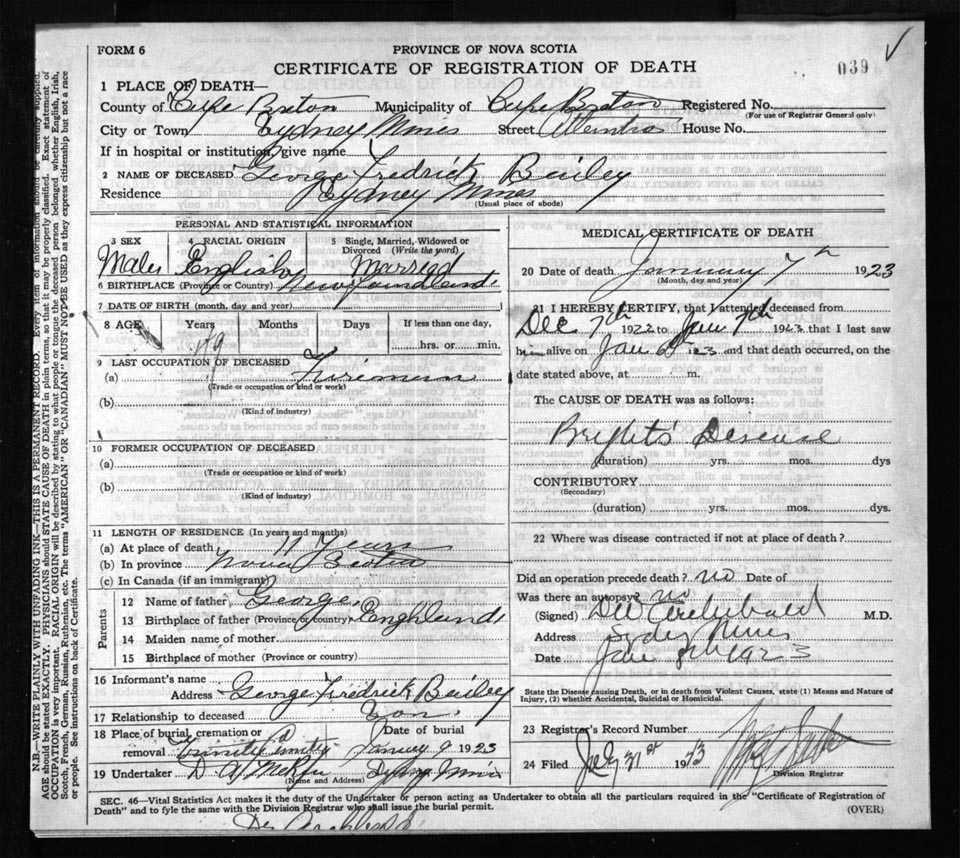 FORM 6
PROVINCE OF NOVA SCOTIA
CERTIFICATE OF REGISTRATION OF DEATH
039
1 PLACE OF DEATH—
County of Cape Breton Municipality of Cape Breton Registered No.
(For use of Registrar General only)
City or Town Sydney Mines Street House No.
If in hospital or institution, give name
2 NAME OF DECEASED George Fredrick Bailey
Residence Sydney Mines
(Usual place of abode)
PERSONAL AND STATISTICAL INFORMATION
3 SEX 4 RACIAL ORIGIN 5 Single, Married, Widowed or Divorced (Write the word)
Male English Married
6 BIRTHPLACE (Province or Country) Newfoundland
7 DATE OF BIRTH (month, day and year)
8 AGE Years Months Days If less than one day,
hrs. or min.
9 LAST OCCUPATION OF DECEASED
(a) Fireman
(Trade or occupation or kind or work)
(b)
(Kind of industry)
10 FORMER OCCUPATION OF DECEASED
(a)
(Trade or occupation or kind of work)
(b)
(Kind of industry)
11 LENGTH OF RESIDENCE (In years and months)
(a) At place of death Years
(b) In province Nova Scotia
(c) In Canada (if an immigrant)
Parents
12 Name of father George
13 Birthplace of father (Province or country) England
14 Maiden name of mother
15 Birthplace of mother (Province or country)
16 Informant's name
Address George Fredrick Bailey
17 Relationship to deceased Son
18 Place of burial, cremation or removal Date of burial
Trinity January 9 1923
19 Undertaker D A McRae Sydney Mines
(Name and Address)
MEDICAL CERTIFICATE OF DEATH
20 Date of death January 7th 1923
(Month, day and year)
21 I HEREBY CERTIFY, that I attended deceased from
Dec 7th 1922 to Jan 7th 1923 that I last saw
him alive on Jan 6th 1923 and that death occurred, on the
date stated above, at m.
The CAUSE OF DEATH was as follows:
Bright's Disease
(duration) yrs. mos. dys
CONTRIBUTORY
(Secondary)
(duration) yrs. mos. dys.
22 Where was disease contracted if not at place of death?
Did an operation precede death? no Date of
Was there an autopsy? no
(Signed) Archibald M.D.
Address Sydney Mines
Date Jan 8th 1923
State the Disease causing Death, or in death from Violent Causes, state (1) Means and Nature of
Injury, (2) whether Accidental, Suicidal or Homicidal.
23 Registrar's Record Number
24 Filed July 31st 1923
Division Registrar
SEC. 46—Vital Statistics Act makes it the duty of the Undertaker or person acting as Undertaker to obtain all the particulars required in the "Certificate of Registration of
Death" and to fyle the same with the Division Registrar who shall issue the burial permit.
(OVER)
Dr Archibald
N.B.—WRITE PLAINLY WITH UNFADING INK—THIS IS A PERMANENT RECORD. Every item of information should be carefully supplied.
AGE should be stated EXACTLY. PHYSICIANS should STATE CAUSE OF DEATH in plain terms, so that it may be properly classified. Exact statement of
OCCUPATION is very important. RACIAL ORIGIN will be described by stating to what people or tongue the deceased person belonged whether English, Irish,
Scotch, French, German, Russian, Ruthenian, etc. The terms "AMERICAN" OR "CANADIAN" MUST NOT BE USED as they express citizenship but not a race
or people. See instructions on back of Certificate.